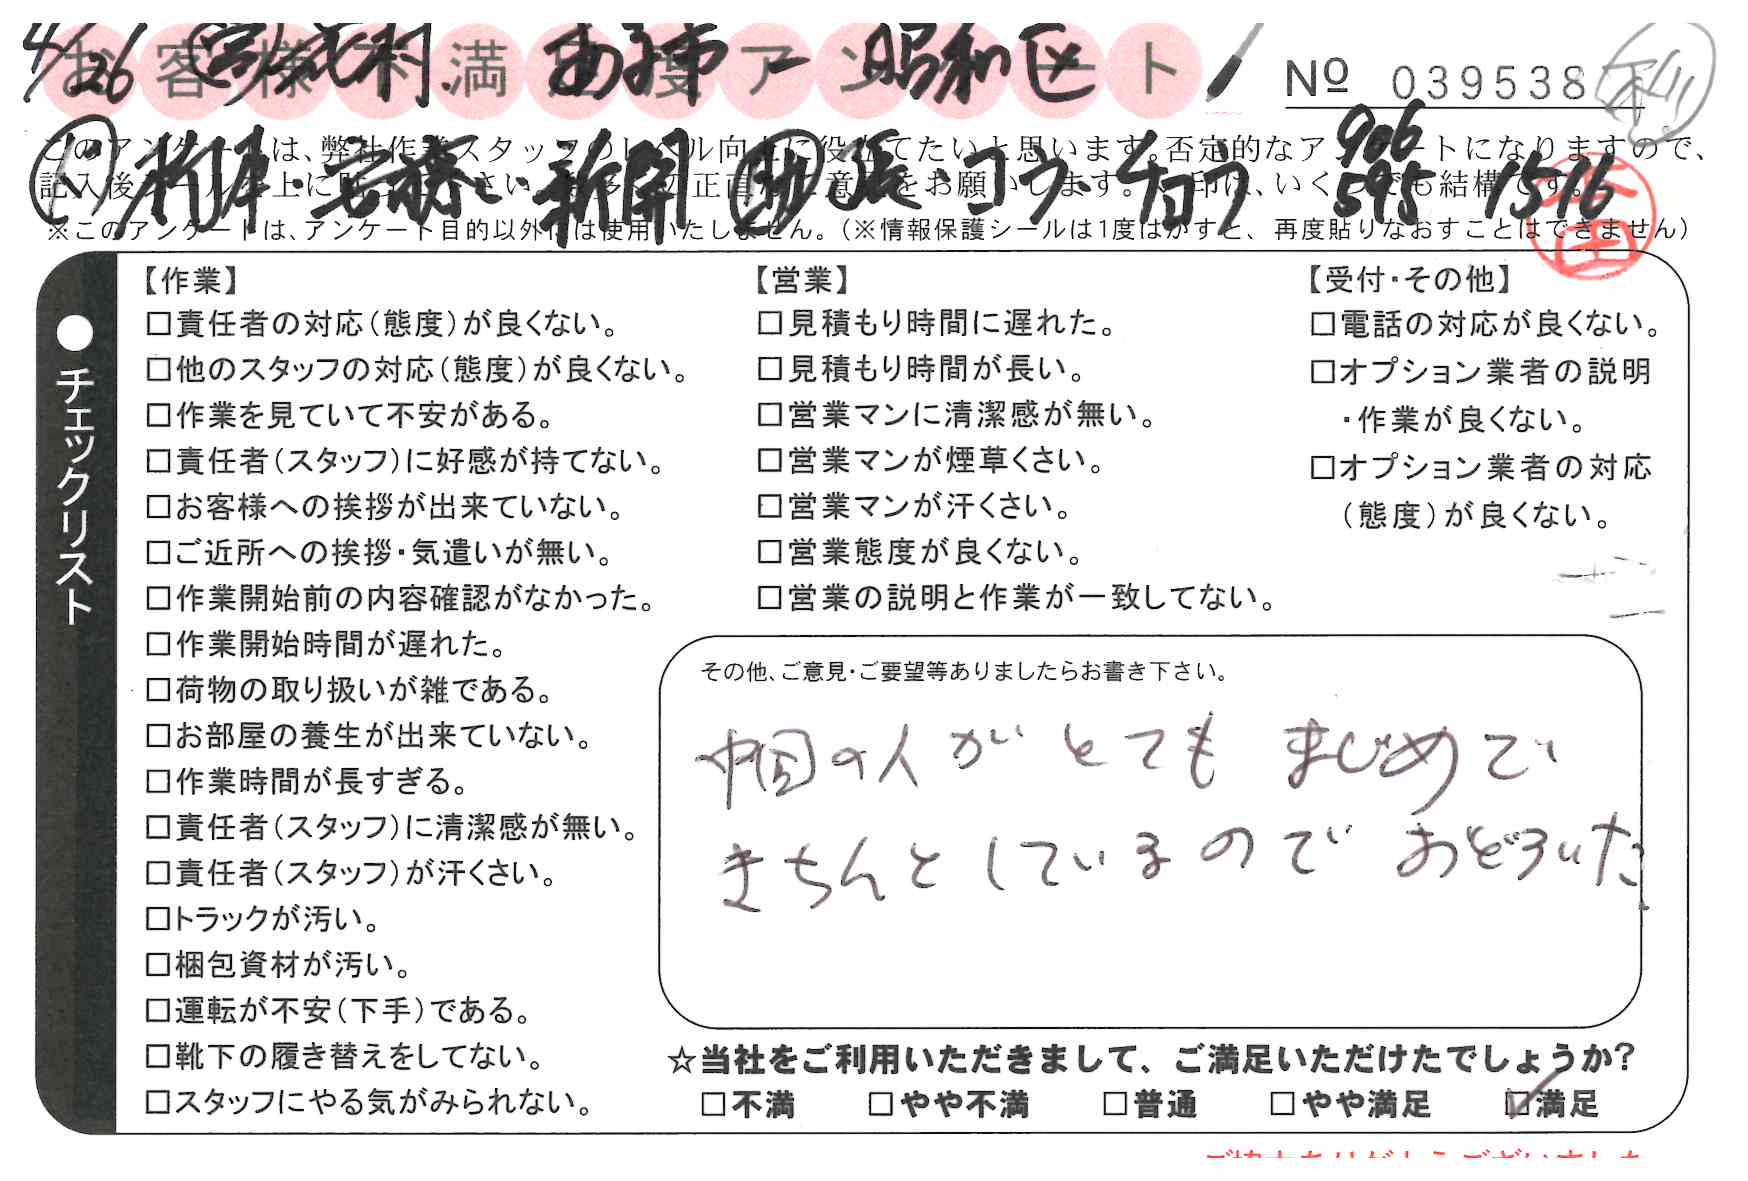 4/26 あま市ー昭和区
お客様不満足度アンケート
№ 039538
このアンケートは、弊社作業スタッフのレベル向上に役立てたいと思います。否定的なアンケートになりますので、
906
595 1516
※このアンケートは、アンケート目的以外には使用いたしません。（※情報保護シールは1度はがすと、再度貼りなおすことはできません）
●チェックリスト
【作業】
□責任者の対応（態度）が良くない。
□他のスタッフの対応（態度）が良くない。
□作業を見ていて不安がある。
□責任者（スタッフ）に好感が持てない。
□お客様への挨拶が出来ていない。
□ご近所への挨拶・気遣いが無い。
□作業開始前の内容確認がなかった。
□作業開始時間が遅れた。
□荷物の取り扱いが雑である。
□お部屋の養生が出来ていない。
□作業時間が長すぎる。
□責任者（スタッフ）に清潔感が無い。
□責任者（スタッフ）が汗くさい。
□トラックが汚い。
□梱包資材が汚い。
□運転が不安（下手）である。
□靴下の履き替えをしてない。
□スタッフにやる気がみられない。
【営業】
□見積もり時間に遅れた。
□見積もり時間が長い。
□営業マンに清潔感が無い。
□営業マンが煙草くさい。
□営業マンが汗くさい。
□営業態度が良くない。
□営業の説明と作業が一致してない。
【受付・その他】
□電話の対応が良くない。
□オプション業者の説明
・作業が良くない。
□オプション業者の対応
（態度）が良くない。
その他、ご意見・ご要望等ありましたらお書き下さい。
中国の人が とても まじめで
きちんと しているので おどろいた
☆当社をご利用いただきまして、ご満足いただけたでしょうか？
□不満 □やや不満 □普通 □やや満足 ☑満足
ご協力ありがとうございました